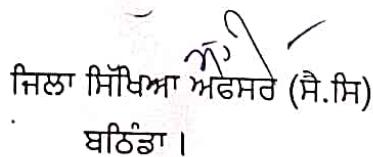 ਜਿਲਾ ਸਿੱਖਿਆ ਅਫਸਰ (ਸੈ.ਸਿ)
ਬਠਿੰਡਾ।